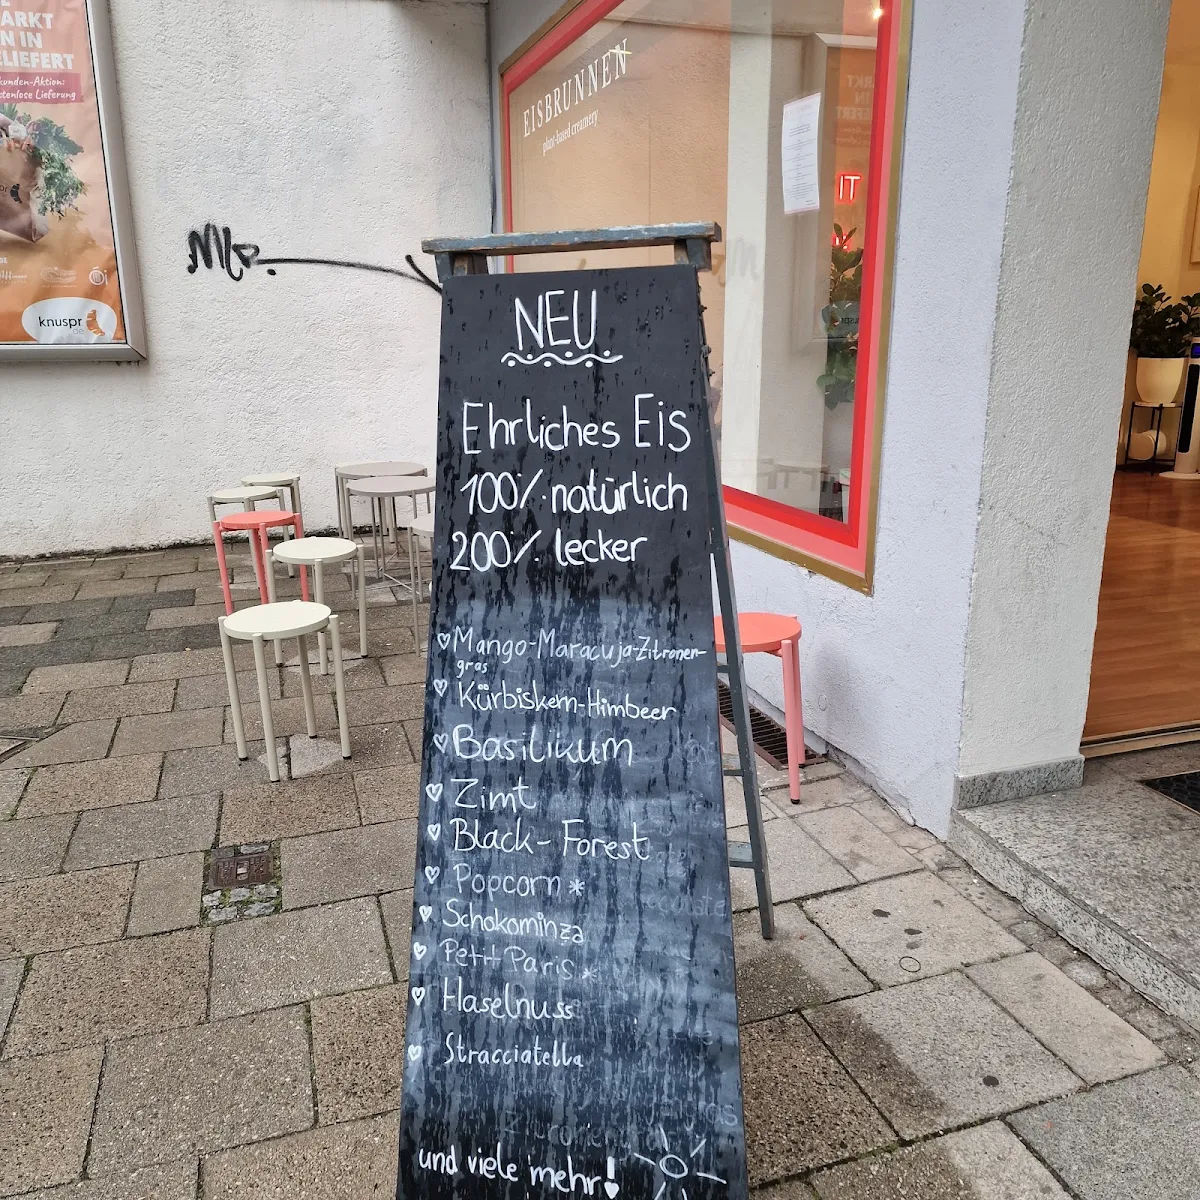 ARKT
N IN
ELIEFERT
kunden-Aktion:
stenlose Lieferung
knuspr
.de
EISBRUNNEN
plant-based creamery
NEU
Ehrliches Eis
100% natürlich
200% lecker
♡ Mango-Maracuja-Zitronen-
gras
♡ Kürbiskern-Himbeer
♡ Basilikum
♡ Zimt
♡ Black-Forest
♡ Popcorn *
♡ Schokominza
♡ Petit Paris *
♡ Haselnuss
♡ Stracciatella
und viele mehr!